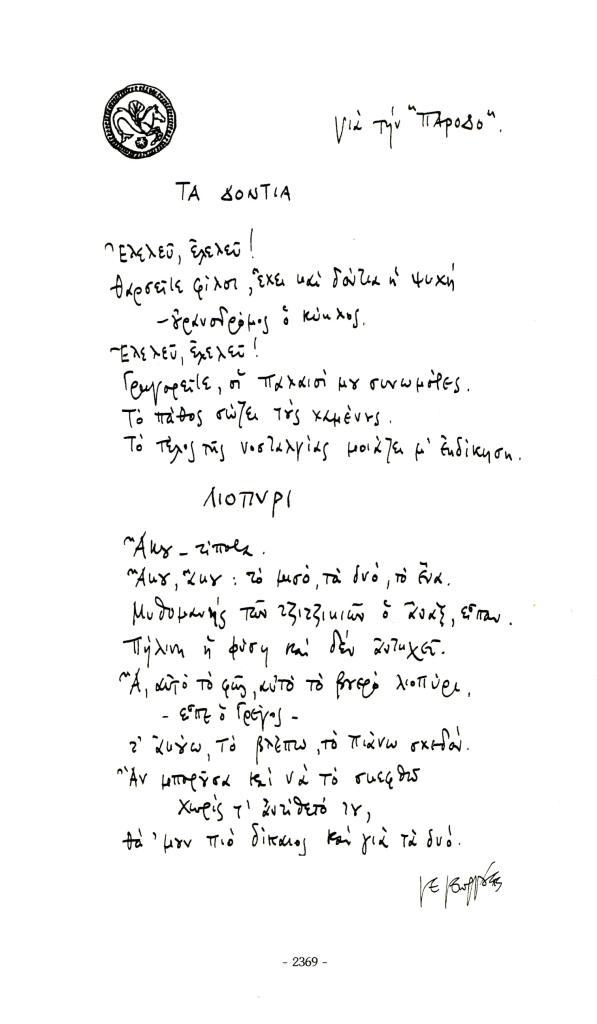 Γιὰ τὴν "ΠΑΡΟΔΟ".
ΤΑ ΔΟΝΤΙΑ
Ἐλελεῦ, ἐλελεῦ!
Θαρσεῖτε φίλοι, ἔχει καὶ δόντια ἡ ψυχή
- γρανοδρόμος ὁ κύκλος.
Ἐλελεῦ, ἐλελεῦ!
Γρηγορεῖτε, οἱ παλαιοί μου συνωμότες.
Τὸ πάθος σώζει τοὺς χαμένους.
Τὸ τέλος τῆς νοσταλγίας μοιάζει μ' ἐκδίκηση.
ΛΙΟΠΥΡΙ
Ἄκου - τίποτα.
Ἄκου, ἄκου: τὸ μισό, τὰ δυό, τὸ ἕνα.
Μυθομανὴς τῶν τζιτζικιῶν ὁ ἄναξ, εἶπαν.
Πήλινη ἡ φύση καὶ δὲν ἀντηχεῖ.
Ἄ, αὐτὸ τὸ φῶς, αὐτὸ τὸ βουερὸ λιοπύρι,
- εἶπε ὁ Γρέγος -
τ' ἀκούω, τὸ βλέπω, τὸ πιάνω σχεδόν.
Ἂν μποροῦσα καὶ νὰ τὸ σκεφθῶ
χωρὶς τ' ἀντίθετό του,
θά 'μουν πιὸ δίκαιος καὶ γιὰ τὰ δυό.
- 2369 -